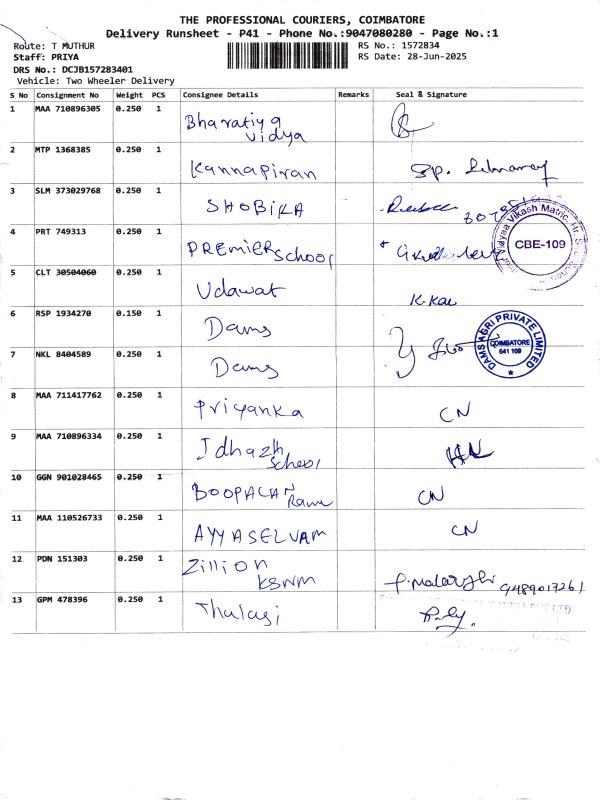 THE PROFESSIONAL COURIERS, COIMBATORE
Delivery Runsheet - P41 - Phone No.:9047080280 - Page No.:1
Route: T MUTHUR
Staff: PRIYA
DRS No.: DCJB157283401
Vehicle: Two Wheeler Delivery
RS No.: 1572834
RS Date: 28-Jun-2025
S No Consignment No Weight PCS Consignee Details Remarks Seal & Signature
1 MAA 710896305 0.250 1 Bharatiya
Vidya
2 MTP 1368385 0.250 1 Kannapiran
3 SLM 373029768 0.250 1 SHOBIKA
4 PRT 749313 0.250 1 PREMIER School
CBE-109
5 CLT 30504060 0.250 1 Udawat K.Kae
6 RSP 1934270 0.150 1 Dams
DAMS AGRI PRIVATE LIMITED
COIMBATORE
641 109
7 NKL 8404589 0.250 1 Dams
8 MAA 711417762 0.250 1 Priyanka CN
9 MAA 710896334 0.250 1 Idhazh
School
10 GGN 901028465 0.250 1 BOOPALAN
Ramu CN
11 MAA 110526733 0.250 1 AYYASELVAM CN
12 PDN 151303 0.250 1 Zillion
KSWM 9489017261
13 GPM 478396 0.250 1 Thulasi